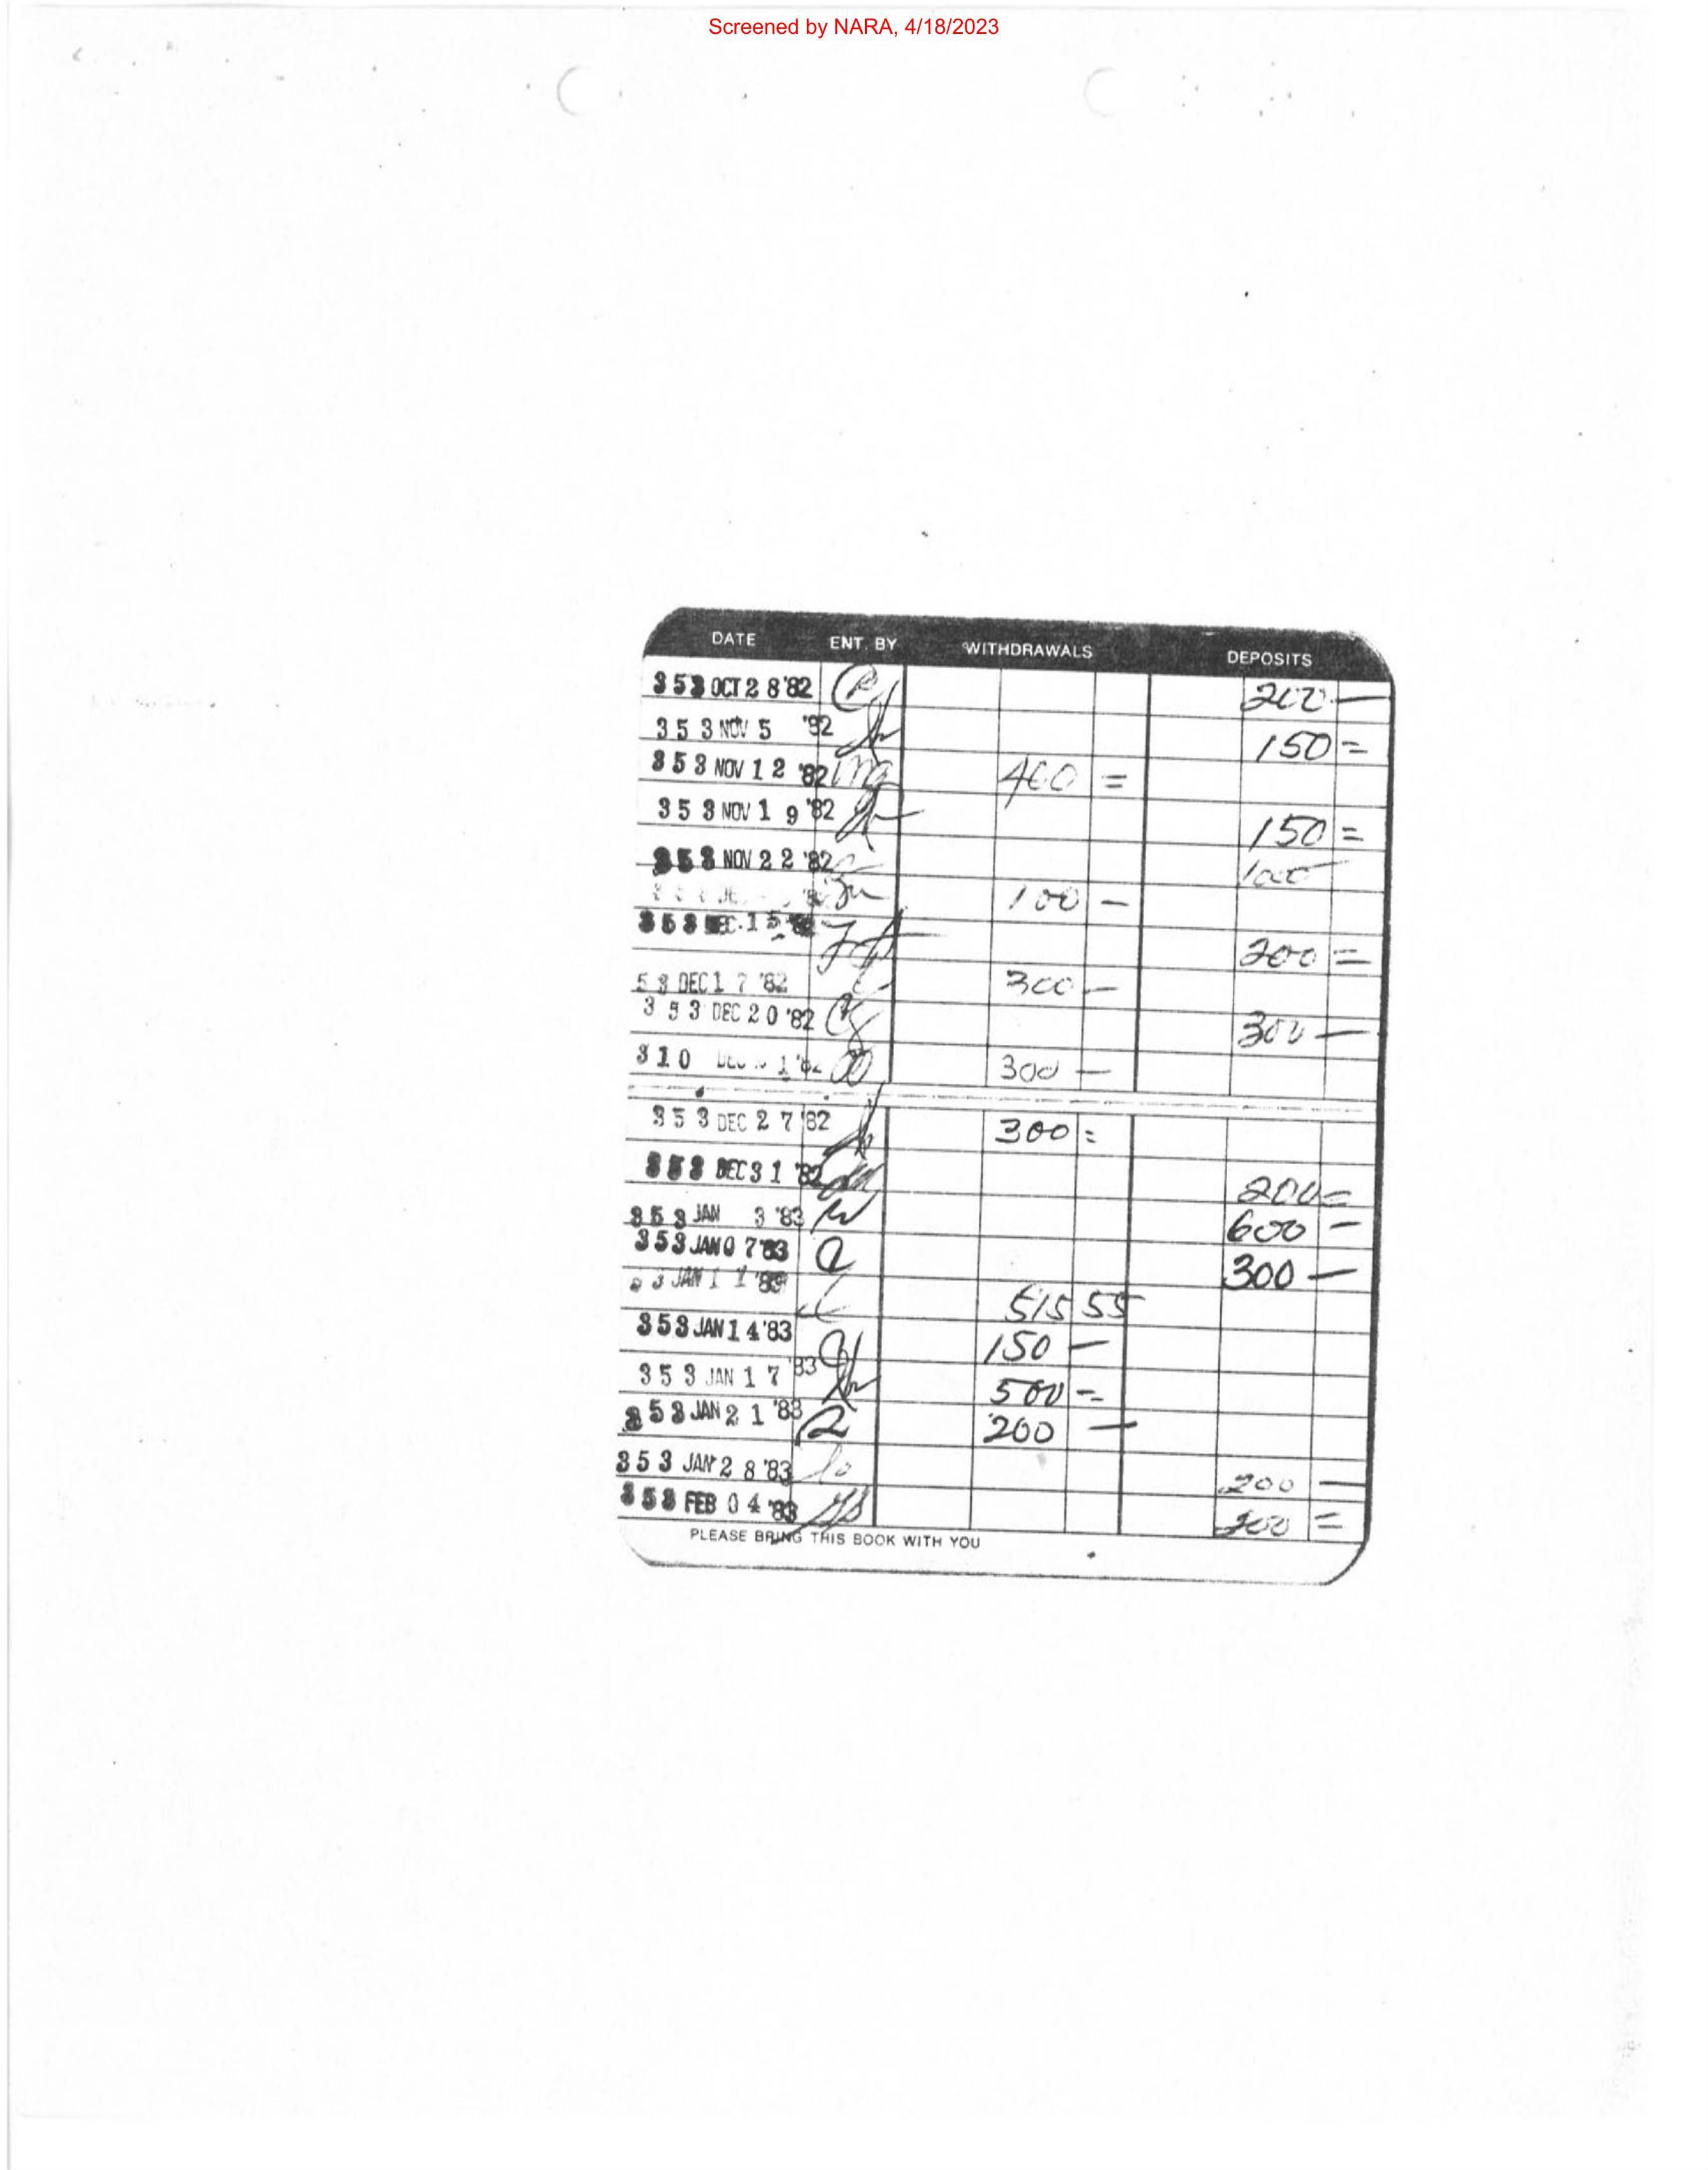 Screened by NARA, 4/18/2023
DATE ENT. BY WITHDRAWALS DEPOSITS
353 OCT 28 '82 200 —
353 NOV 5 '82 150 =
353 NOV 12 '82 400 =
353 NOV 19 '82 150 =
353 NOV 22 '82
100 —
353 DEC 15 200 =
53 DEC 17 '82 300 —
353 DEC 20 '82 300 —
310 300 —
353 DEC 27 '82 300 =
353 DEC 31 '82 200 =
353 JAN 3 '83 600 —
353 JAN 07 '83 300 —
3 JAN 11 '83 515 55
353 JAN 14 '83 150 —
353 JAN 17 '83 500 =
353 JAN 21 '83 200 —
353 JAN 28 '83 200 —
353 FEB 04 '83 =
PLEASE BRING THIS BOOK WITH YOU